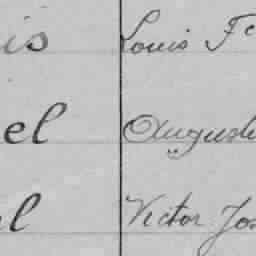 is Louis Fc
el August
l Victor Jos